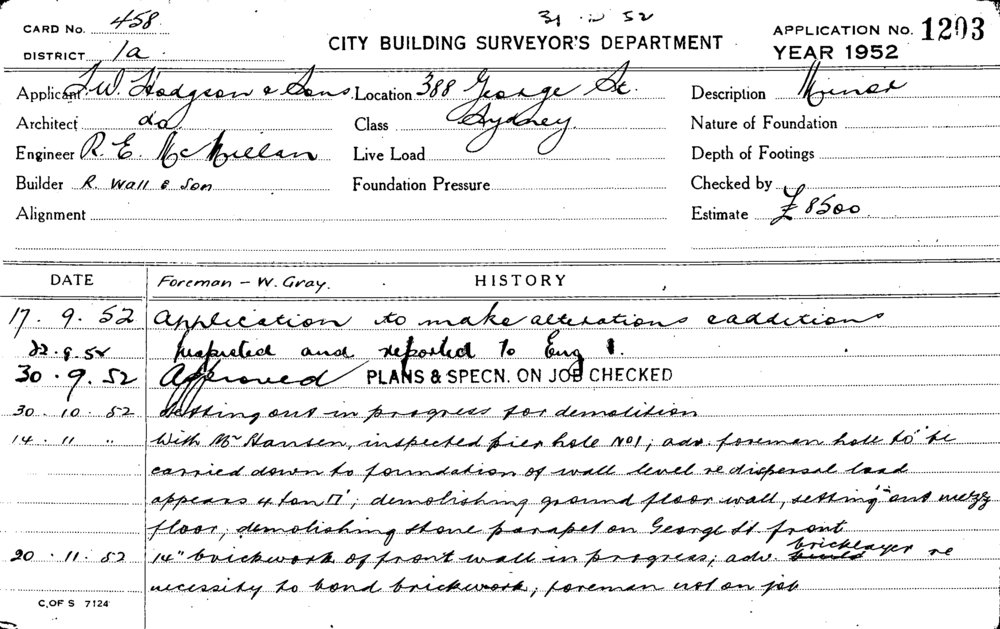 31 52
CARD No. 458
CITY BUILDING SURVEYOR'S DEPARTMENT
APPLICATION No. 1203
DISTRICT 1a
YEAR 1952
Applicant F.W. Hodgson & Sons Location 388 George St. Description Minor
Architect do Class Sydney. Nature of Foundation
Engineer R. E. McMillan Live Load Depth of Footings
Builder R. Wall & Son Foundation Pressure Checked by
Alignment Estimate £8500
DATE Foreman - W. Gray. HISTORY
17. 9. 52 Application to make alterations & additions
22.9.52 Inspected and reported to Eng 1.
30.9.52 Approved PLANS & SPECN. ON JOB CHECKED
30. 10. 52 Setting out in progress for demolition
14. 11 " With Mr Hansen, inspected pier hole No1; adv. foreman hole to be
carried down to foundation of wall level re dispersal load
appears 4 ton □'; demolishing ground floor wall, setting out mezz
floor; demolishing stone parapet on George St front
20. 11. 52 14" brickwork of front wall in progress; adv. bricklayer re
necessity to bond brickwork; foreman not on job
C.OF S 7124